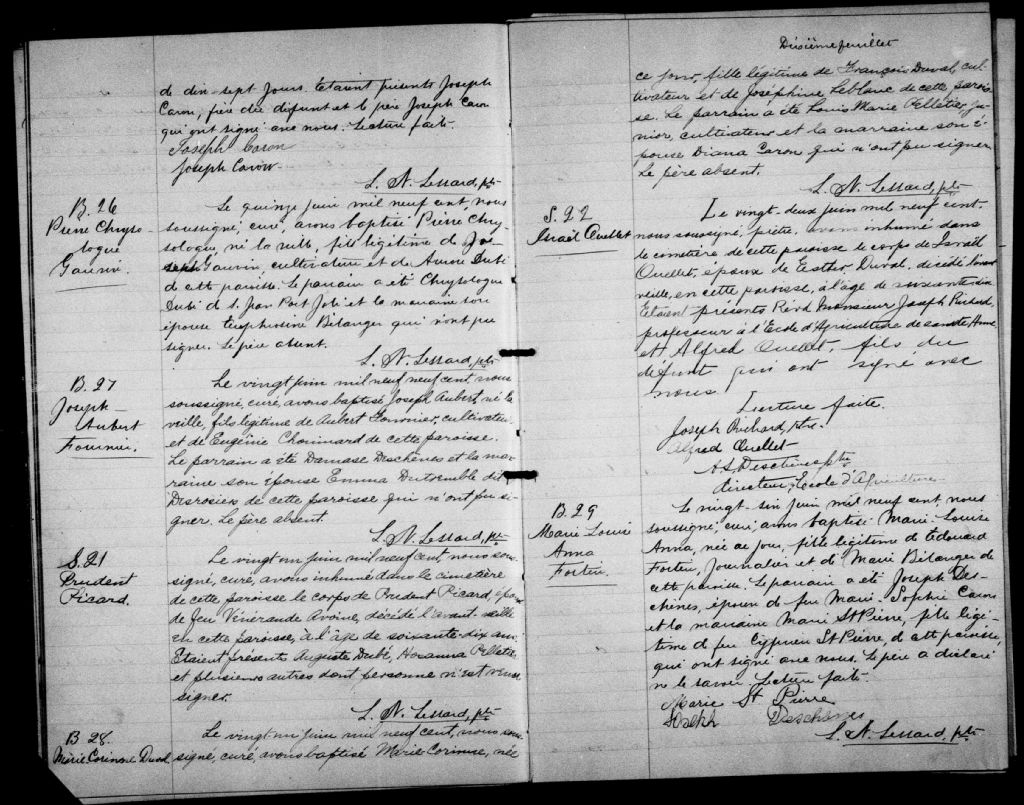 de dix-sept jours. Etaient présents Joseph
Caron, frère du défunt et le père Joseph Caron
qui ont signé avec nous. Lecture faite.
Joseph Caron
Joseph Caron
L. N. Lessard, ptre
B. 26
Pierre Chryso-
logue
Gauvin.
Le quinze juin mil neuf cent, nous
soussigné, curé, avons baptisé Pierre Chry-
sologue, né la veille, fils légitime de Jo-
seph Gauvin, cultivateur et de Aurore Dubé
de cette paroisse. Le parrain a été Chrysologue
Dubé de S. Jean Port Joli et la marraine son
épouse Euphrosine Bélanger qui n'ont pu
signer. Le père absent.
L. N. Lessard, ptre
B. 27
Joseph-
Aubert
Fournier.
Le vingt juin mil neuf neuf cent, nous
soussigné curé, avons baptisé Joseph Aubert, né la
veille, fils légitime de Aubert Fournier, cultivateur
et de Eugénie Chouinard de cette paroisse.
Le parrain a été Damase Deschênes et la mar-
raine son épouse Emma Dutremble dit
Desrosiers de cette paroisse qui n'ont pu si-
gner. Le père absent.
L. N. Lessard, ptre
S. 21
Prudent
Picard.
Le vingt un juin mil neuf cent, nous sous-
signé, curé, avons inhumé dans le cimetière
de cette paroisse le corps de Prudent Picard, époux
de feu Vénérande Avoine, décédé l'avant-veille
en cette paroisse, à l'âge de soixante-dix ans.
Etaient présents Auguste Dubé, Hosanna Pelletier
et plusieurs autres dont personne n'est venu
signer.
L. N. Lessard, ptre
B 28.
Marie Corinne Duval
Le vingt-un juin mil neuf cent, nous sous-
signé, curé, avons baptisé Marie Corinne, née
Dixième feuillet
ce jour, fille légitime de François Duval, cul-
tivateur et de Joséphine Leblanc de cette parois-
se. Le parrain a été Louis Marie Pelletier, ju-
nior, cultivateur et la marraine son é-
pouse Diana Caron qui n'ont pu signer.
Le père absent.
L. N. Lessard, ptre
S. 22
Israël Ouellet
Le vingt-deux juin mil neuf cent-
nous soussigné, prêtre, avons inhumé dans
le cimetière de cette paroisse le corps de Israël
Ouellet, époux de Esther Duval, décédé l'avant
veille, en cette paroisse, à l'âge de soixante-dix
Etaient présents Révd Monsieur Joseph Richard,
professeur à l'Ecole d'Agriculture de Sainte Anne
et Alfred Ouellet, fils du
défunt qui ont signé avec
nous.
Lecture faite.
Joseph Richard, ptre.
Alfred Ouellet
Deschênes ptre
directeur, Ecole d'Agriculture
B. 29
Marie Louise
Anna
Fortin.
Le vingt-six juin mil neuf cent nous
soussigné, curé, avons baptisé Marie-Louise
Anna, née ce jour, fille légitime de Edouard
Fortin, Journalier et de Marie Bélanger de
cette paroisse. Le parrain a été Joseph Des-
chênes, époux de feu Marie-Sophie Caron
et la marraine Marie St Pierre, fille légi-
time de feu Cyprien St Pierre, de cette paroisse
qui ont signé avec nous. Le père a déclaré
ne le savoir. Lecture faite.
Marie St Pierre
Joseph Deschenes
L. N. Lessard, ptre